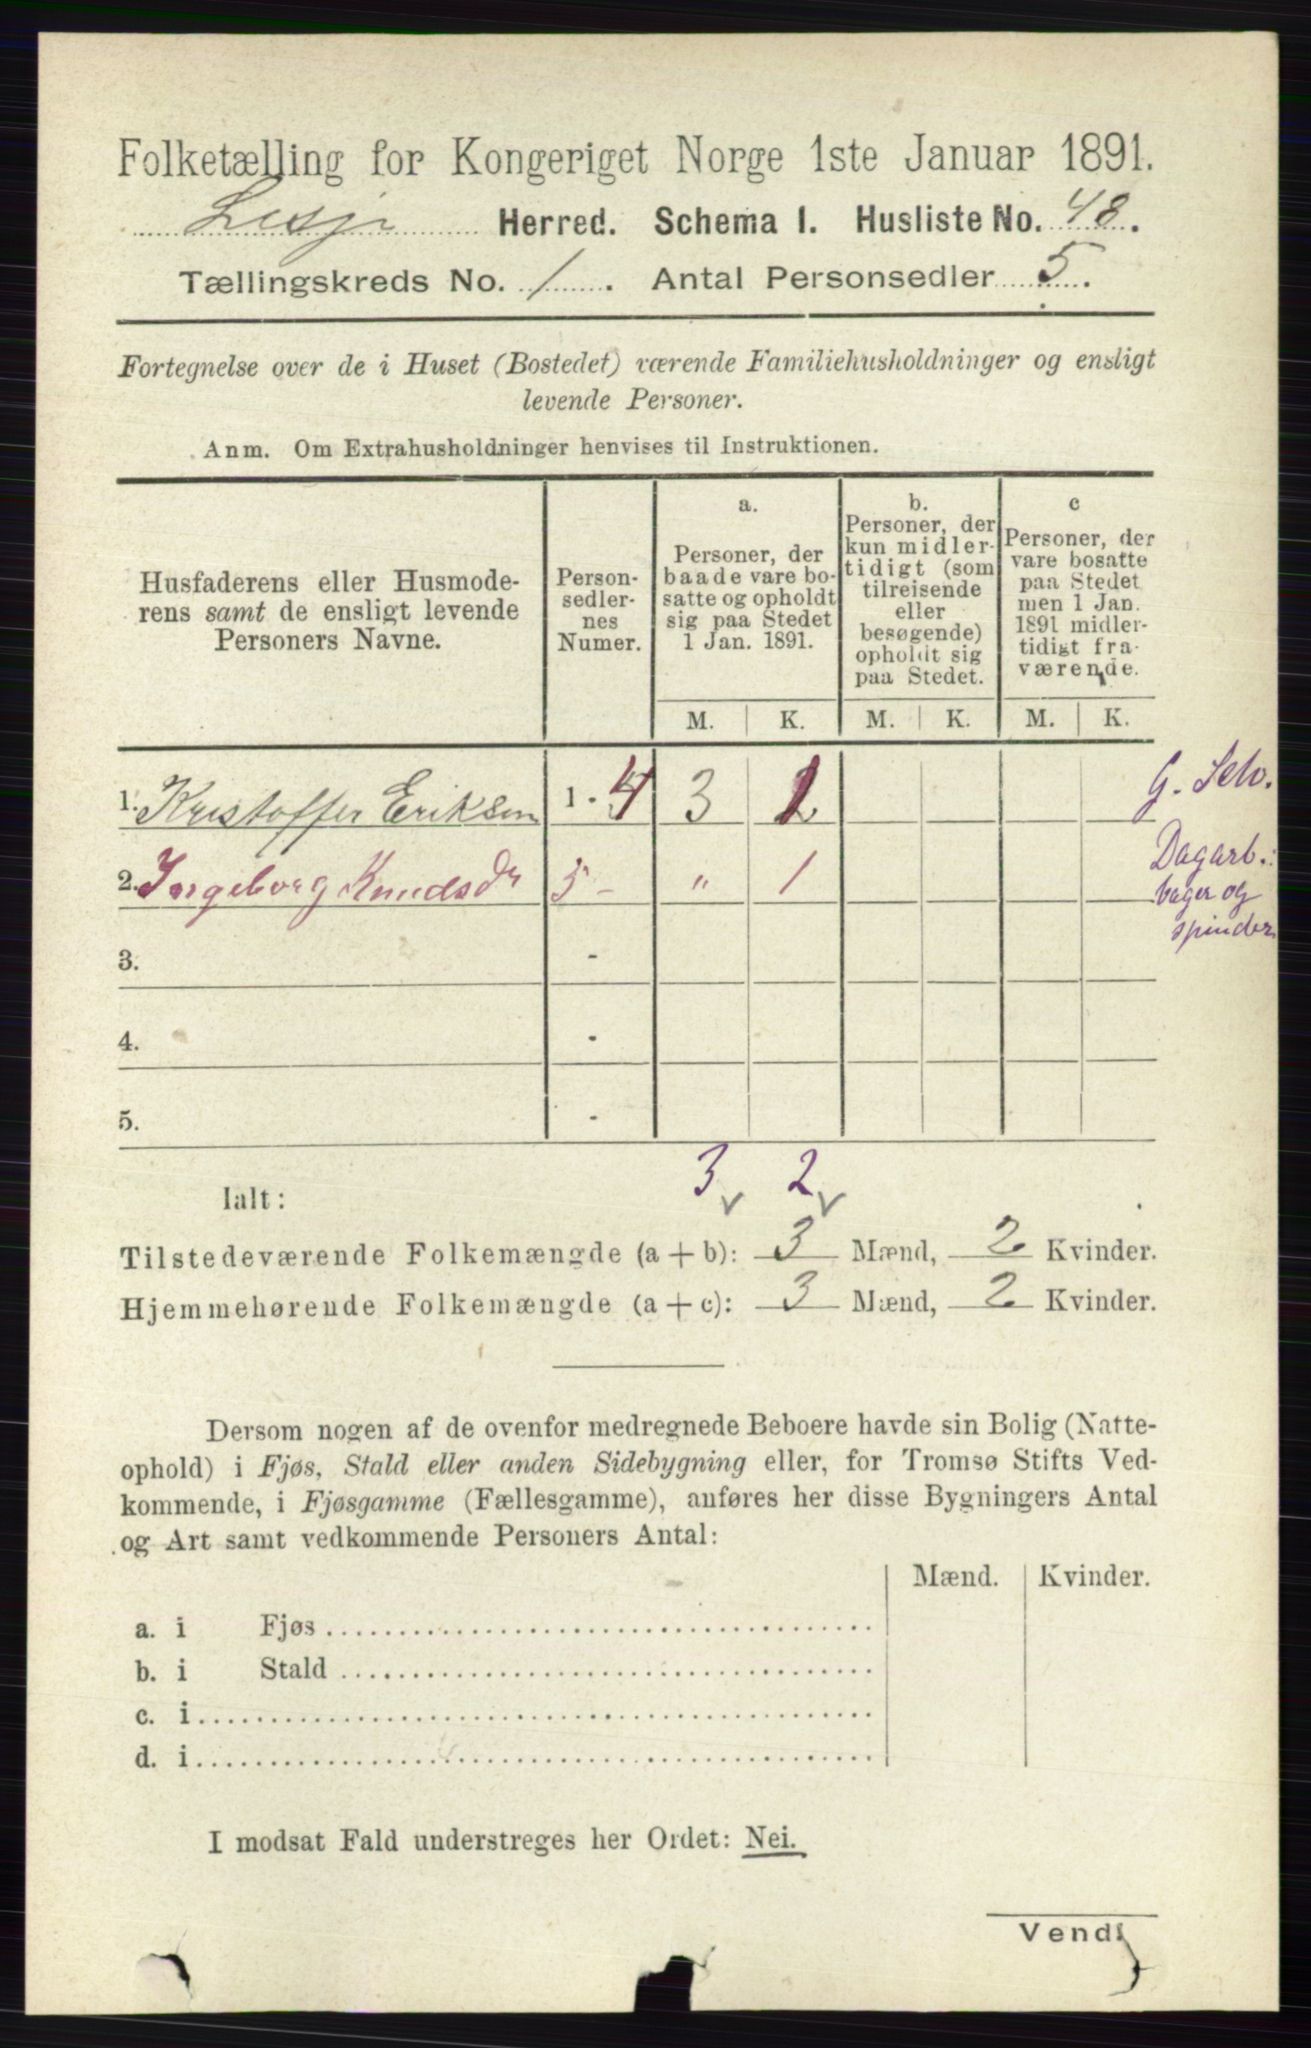 Folketælling for Kongeriget Norge 1ste Januar 1891.
Lesje Herred. Schema I. Husliste No. 48.
Tællingskreds No. 1. Antal Personsedler 5.
Fortegnelse over de i Huset (Bostedet) værende Familiehusholdninger og ensligt
levende Personer.
Anm. Om Extrahusholdninger henvises til Instruktionen.
Husfaderens eller Husmode-
rens samt de ensligt levende
Personers Navne.
Person-
sedler-
nes
Numer.
a.
Personer, der
baade vare bo-
satte og opholdt
sig paa Stedet
1 Jan. 1891.
b.
Personer, der
kun midler-
tidigt (som
tilreisende
eller
besøgende)
opholdt sig
paa Stedet.
c
Personer, der
vare bosatte
paa Stedet
men 1 Jan.
1891 midler-
tidigt fra-
værende.
M. K. M. K. M. K.
1. Kristoffer Eriksen 1 - 4 3 1 G. Selv.
2. Ingeborg Knudsdr 5 - " 1 Dagarb.:
bager og
spinder
3. -
4. -
5. -
3 2
Ialt:
Tilstedeværende Folkemængde (a + b): 3 Mænd, 2 Kvinder.
Hjemmehørende Folkemængde (a + c): 3 Mænd, 2 Kvinder.
Dersom nogen af de ovenfor medregnede Beboere havde sin Bolig (Natte-
ophold) i Fjøs, Stald eller anden Sidebygning eller, for Tromsø Stifts Ved-
kommende, i Fjøsgamme (Fællesgamme), anføres her disse Bygningers Antal
og Art samt vedkommende Personers Antal:
Mænd. Kvinder.
a. i Fjøs
b. i Stald
c. i
d. i
I modsat Fald understreges her Ordet: Nei.
Vend!